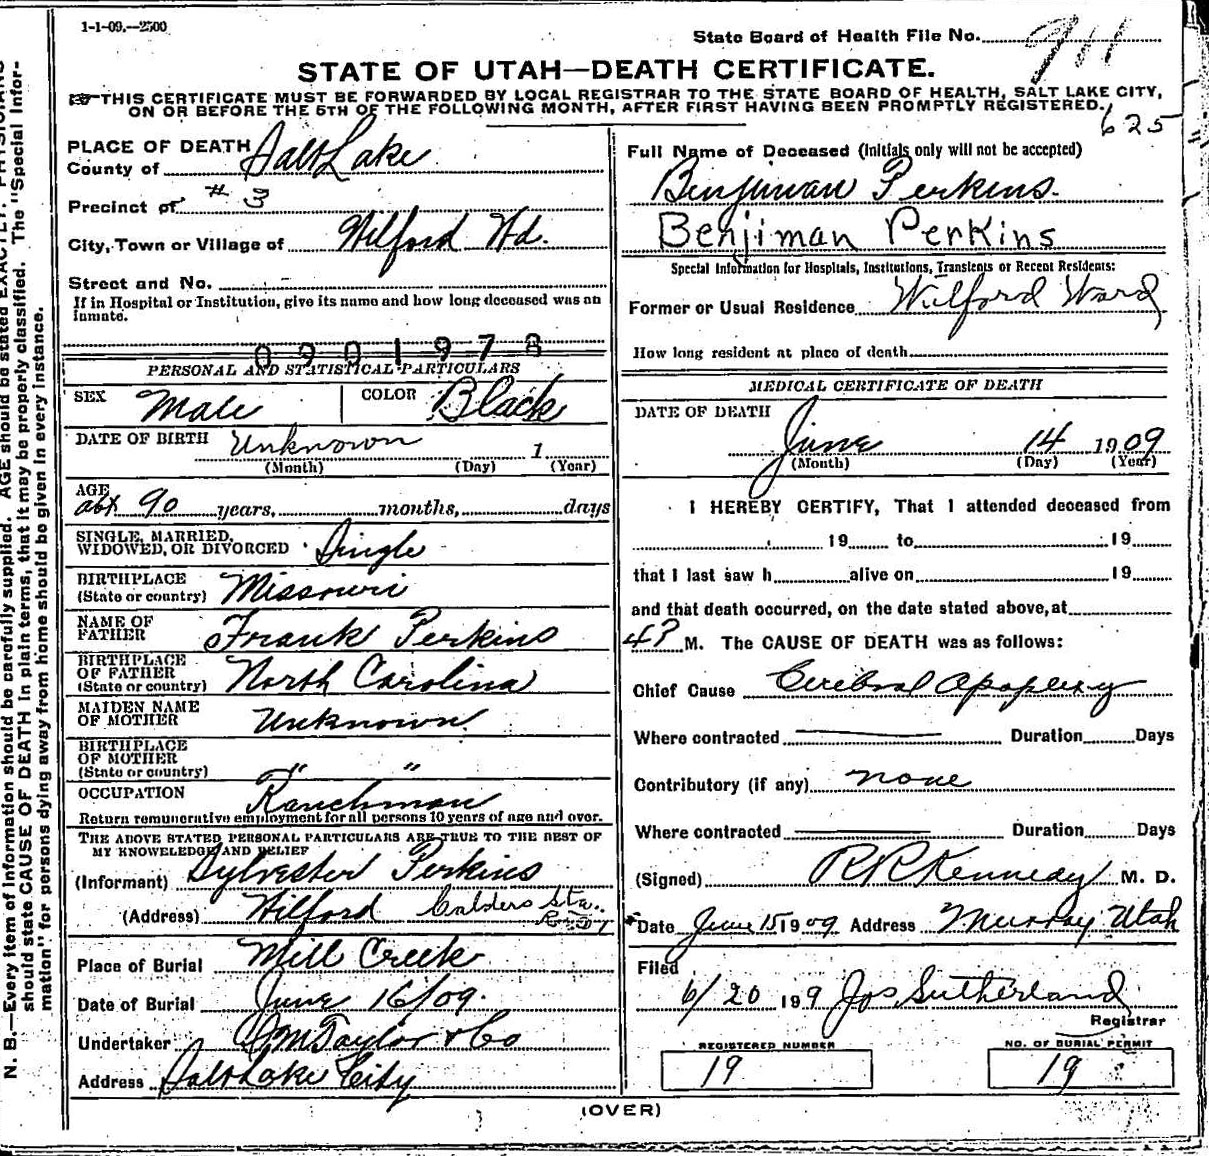 1-1-09.—2500
State Board of Health File No. 911
STATE OF UTAH—DEATH CERTIFICATE.
THIS CERTIFICATE MUST BE FORWARDED BY LOCAL REGISTRAR TO THE STATE BOARD OF HEALTH, SALT LAKE CITY,
ON OR BEFORE THE 5TH OF THE FOLLOWING MONTH, AFTER FIRST HAVING BEEN PROMPTLY REGISTERED.
625
PLACE OF DEATH
County of Salt Lake
Precinct of # 3
City, Town or Village of Wilford Wd.
Street and No. -
If in Hospital or Institution, give its name and how long deceased was an
inmate.
0901978
PERSONAL AND STATISTICAL PARTICULARS
SEX Male COLOR Black
DATE OF BIRTH Unknown 1
(Month) (Day) (Year)
AGE
abt 90 years, months, days
SINGLE, MARRIED,
WIDOWED, OR DIVORCED Single
BIRTHPLACE
(State or country) Missouri
NAME OF
FATHER Frank Perkins
BIRTHPLACE
OF FATHER
(State or country) North Carolina
MAIDEN NAME
OF MOTHER Unknown
BIRTHPLACE
OF MOTHER
(State or country) " "
OCCUPATION Ranchman
Return remunerative employment for all persons 10 years of age and over.
THE ABOVE STATED PERSONAL PARTICULARS ARE TRUE TO THE BEST OF
MY KNOWLEDGE AND BELIEF
(Informant) Sylvester Perkins
(Address) Wilford Calders Sta.
Place of Burial Mill Creek
Date of Burial June 16/09.
Undertaker Taylor & Co
Address Salt Lake City
Full Name of Deceased (Initials only will not be accepted)
Benjiman Perkins.
Benjiman Perkins
Special Information for Hospitals, Institutions, Transients or Recent Residents:
Former or Usual Residence Wilford Ward
How long resident at place of death
MEDICAL CERTIFICATE OF DEATH
DATE OF DEATH
June 14 1909
(Month) (Day) (Year)
I HEREBY CERTIFY, That I attended deceased from
19 to 19
that I last saw h alive on 19
and that death occurred, on the date stated above, at
4 P M. The CAUSE OF DEATH was as follows:
Chief Cause Cerebral Apoplexy
Where contracted — Duration Days
Contributory (if any) none
Where contracted — Duration Days
(Signed) R R Kennedy M. D.
Date June 15 1909 Address Murray Utah
Filed
6/20 1909 Jos Sutherland
Registrar
REGISTERED NUMBER
19
NO. OF BURIAL PERMIT
19
(OVER)
N. B.—Every item of information should be carefully supplied. AGE should be stated EXACTLY. PHYSICIANS
should state CAUSE OF DEATH in plain terms, that it may be properly classified. The "Special Infor-
mation" for persons dying away from home should be given in every instance.